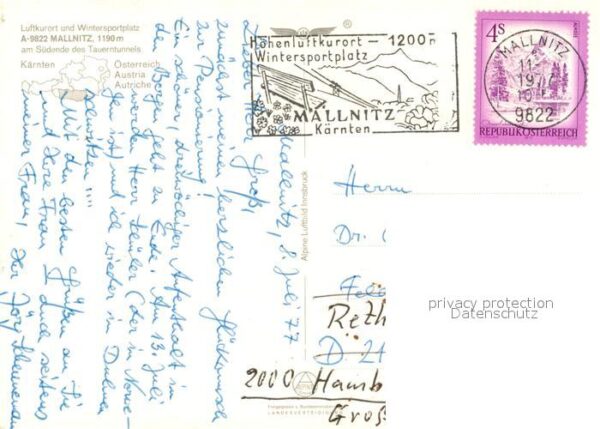 Luftkurort und Wintersportplatz
A-9822 MALLNITZ, 1190 m
am Südende des Tauerntunnels
Kärnten
Österreich
Austria
Autriche
Höhenluftkurort – 1200 m
Wintersportplatz
MALLNITZ
Kärnten
MALLNITZ
9822
4S
REPUBLIK ÖSTERREICH
Mallnitz, 8. Juli 77
Lieber Herr
zunächst meinen herzlichen Glückwunsch
zur Pensionierung!
Ein schöner dreiwöchiger Aufenthalt in
den Bergen geht zu Ende. Am 13. Juli
werden Herr (der in Norwe-
ist) und ich wieder in

Mit den besten Grüßen an Sie
und Ihre Frau, auch seitens
meiner Frau, Ihr Jörg
Alpine Luftbild Innsbruck
Herrn
Dr.
Reth
2000 Hamb
Groß
privacy protection
Datenschutz